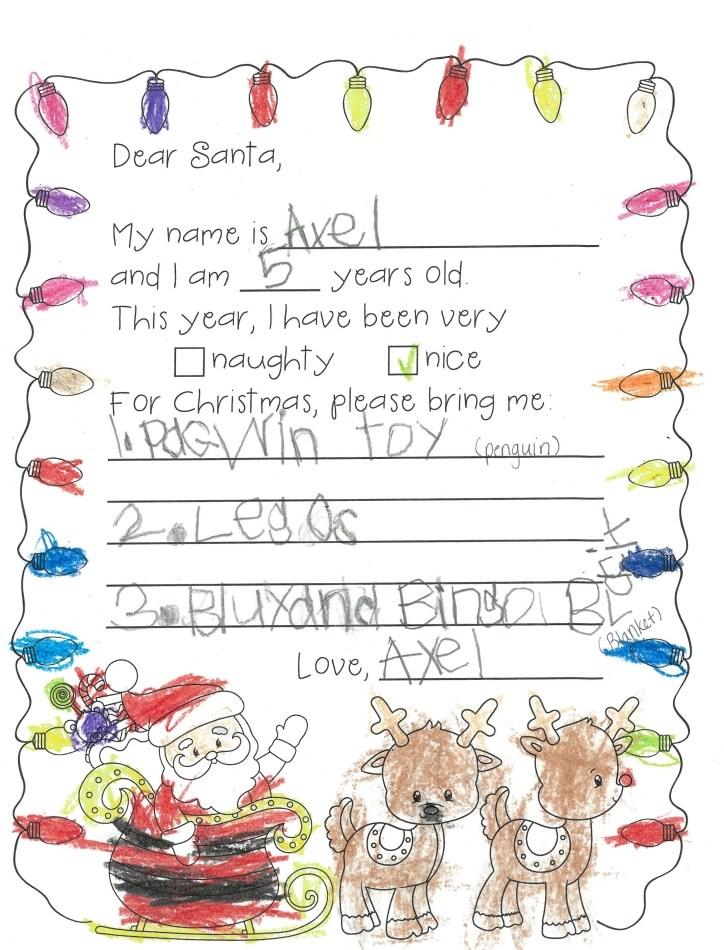 Dear Santa,
My name is Axel
and I am 5 years old.
This year, I have been very
naughty ✓ nice
For Christmas, please bring me:
1. PaGWin toy (penguin)
2. Legos
3. Bluy and Bingo
(Blanket)
Love, Axel